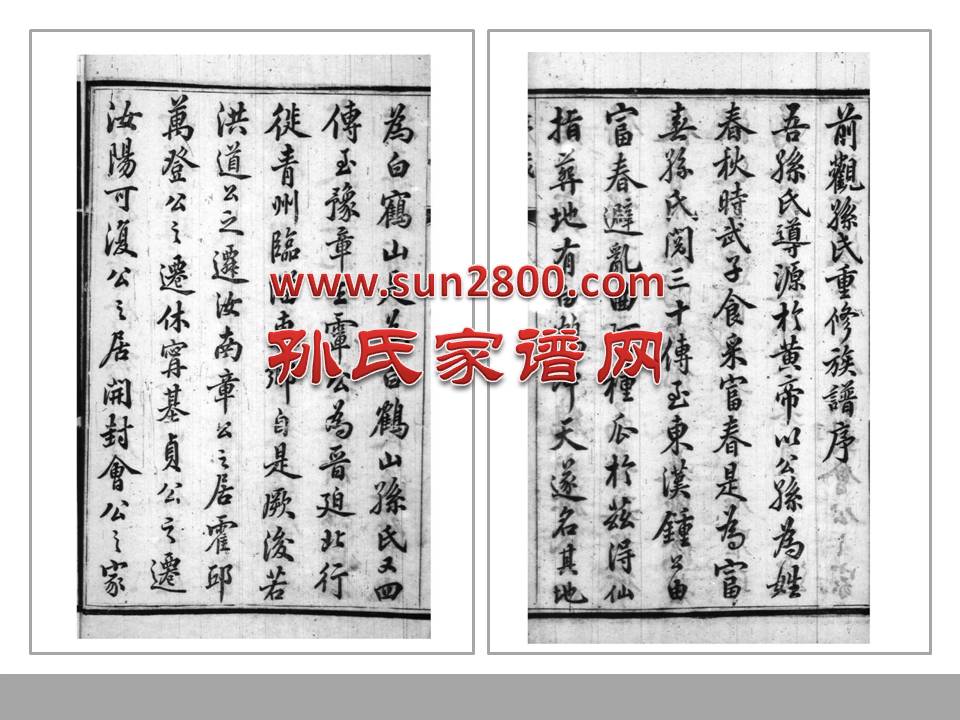 前觀孫氏重修族譜序
吾孫氏導源於黃帝以公孫為姓
春秋時武子食采富春是為富
春孫氏閱三十傳至東漢鍾公由
富春避亂 種瓜於茲得仙
指葬地有 天遂名其地
為白鶴山 鶴山孫氏又四
傳至豫章 公為晉廹北行
徙青州臨 自是厥後若
洪道公之遷汝南章公之居霍邱
萬登公之遷休寗基貞公之遷
汝陽可復公之居開封會公之家
www.sun2800.com
孙氏家谱网